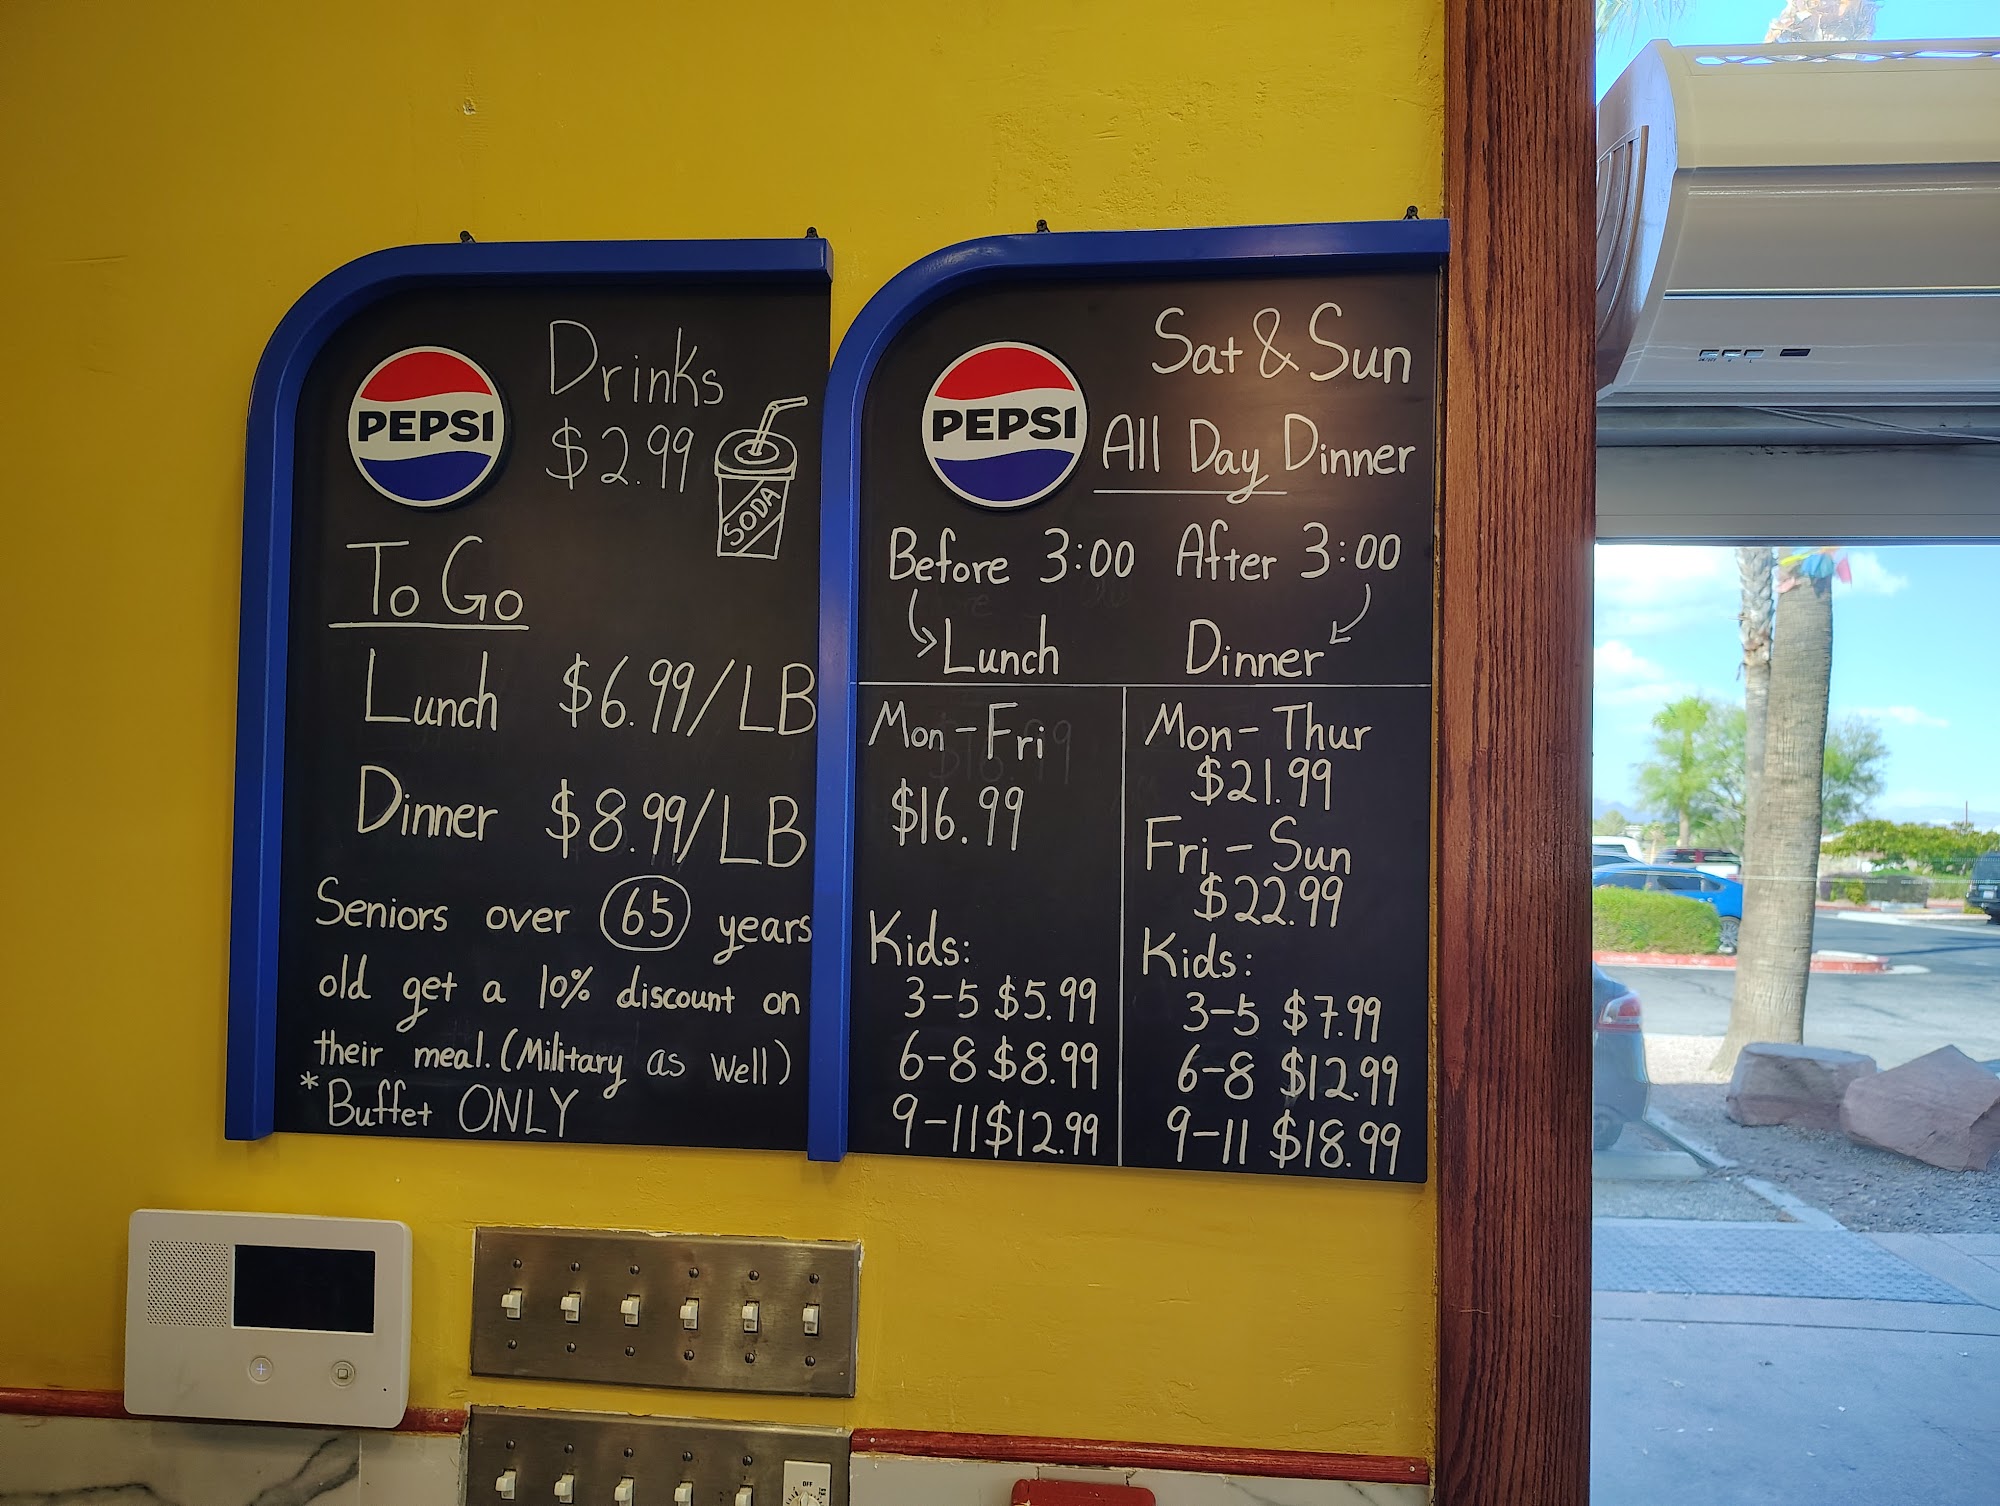 PEPSI
Drinks
$2.99
SODA
To Go
Lunch $6.99/LB
Dinner $8.99/LB
Seniors over 65 years
old get a 10% discount on
their meal. (Military as well)
*Buffet ONLY
PEPSI
Sat & Sun
All Day Dinner
Before 3:00 After 3:00
Lunch Dinner
Mon-Fri
$16.99
Kids:
3-5 $5.99
6-8 $8.99
9-11 $12.99
Mon-Thur
$21.99
Fri-Sun
$22.99
Kids:
3-5 $7.99
6-8 $12.99
9-11 $18.99
OFF